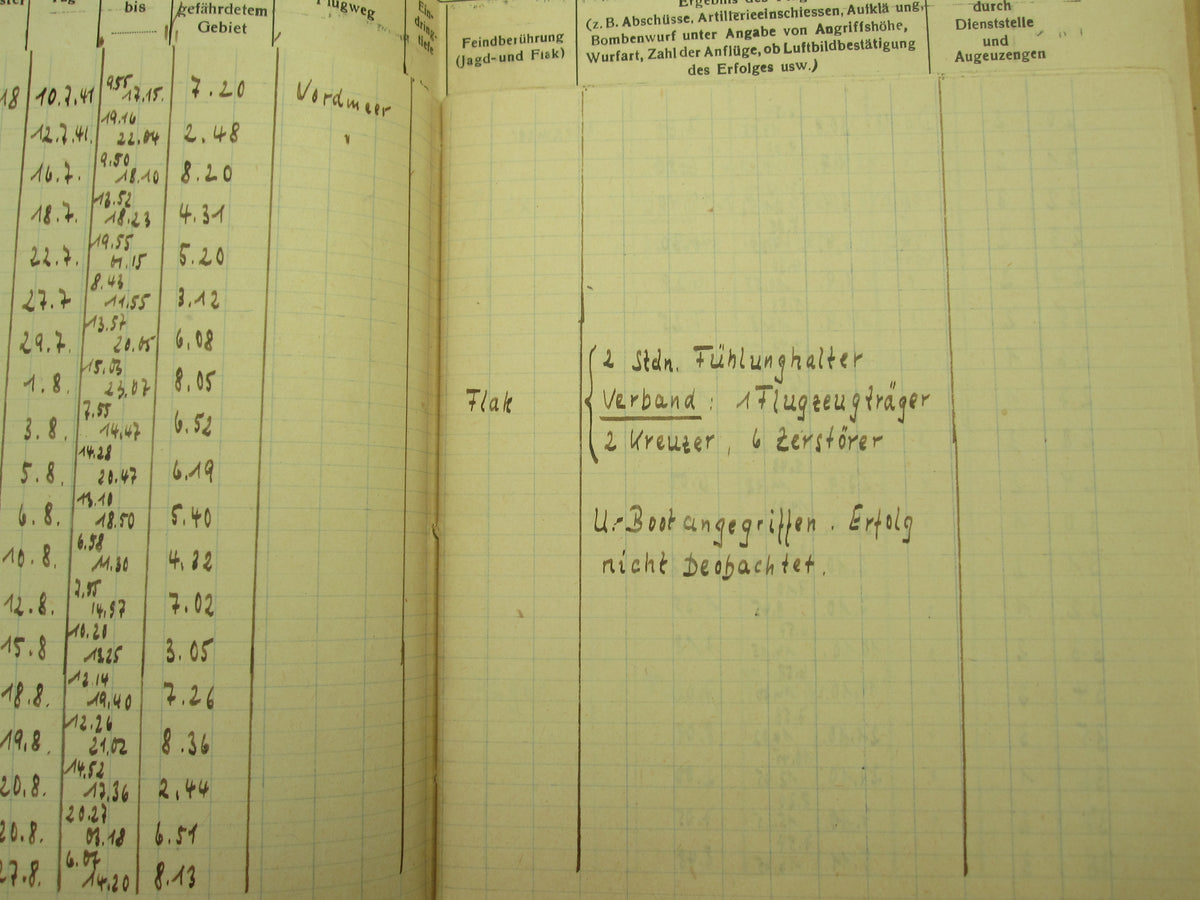 bis
gefährdetem
Gebiet
Flugweg
Ein-
dring-
tiefe
Feindberührung
(Jagd- und Flak)
(z. B. Abschüsse, Artillerieeinschiessen, Aufklä ung,
Bombenwurf unter Angabe von Angriffshöhe,
Wurfart, Zahl der Anflüge, ob Luftbildbestätigung
des Erfolges usw.)
durch
Dienststelle
und
Augeuzengen
18 10.7.41 9.55 17.15. 7.20 Nordmeer
12.7.41. 19.16 22.04 2.48 "
16.7. 9.50 18.10 8.20
18.7. 13.52 18.23 4.31
22.7. 19.55 01.15 5.20
27.7 8.43 11.55 3.12
29.7. 13.57 20.05 6.08
2 Stdn. Fühlunghalter
1.8. 15.03 23.07 8.05
Flak Verband: 1 Flugzeugträger
3.8. 7.55 14.47 6.52
2 Kreuzer, 6 Zerstörer
5.8. 14.28 20.47 6.19
6.8. 13.10 18.50 5.40
U.-Boot angegriffen. Erfolg
10.8. 6.58 11.30 4.32
nicht Beobachtet.
12.8. 7.55 14.57 7.02
15.8 10.20 13.25 3.05
18.8. 12.14 19.40 7.26
19.8. 12.26 21.02 8.36
20.8. 14.52 17.36 2.44
20.8. 20.27 03.18 6.51
27.8. 6.07 14.20 8.13